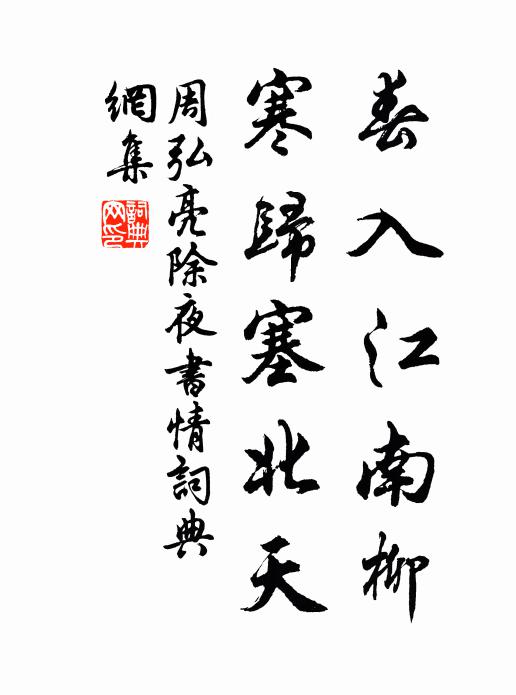 春入江南柳
寒歸塞北天
周弘亮除夜書情詞典
網集
詞典網印